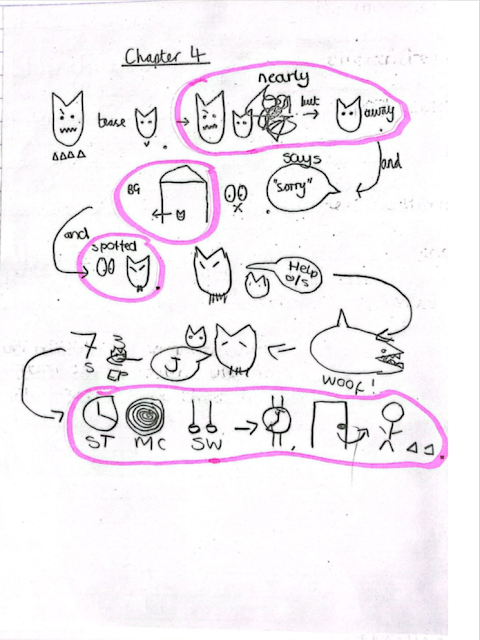 Chapter 4
nearly
tease
but
away
says
and
BG
"sorry"
and
spotted
Help
o/s
7
s
J
woof!
ST MC SW